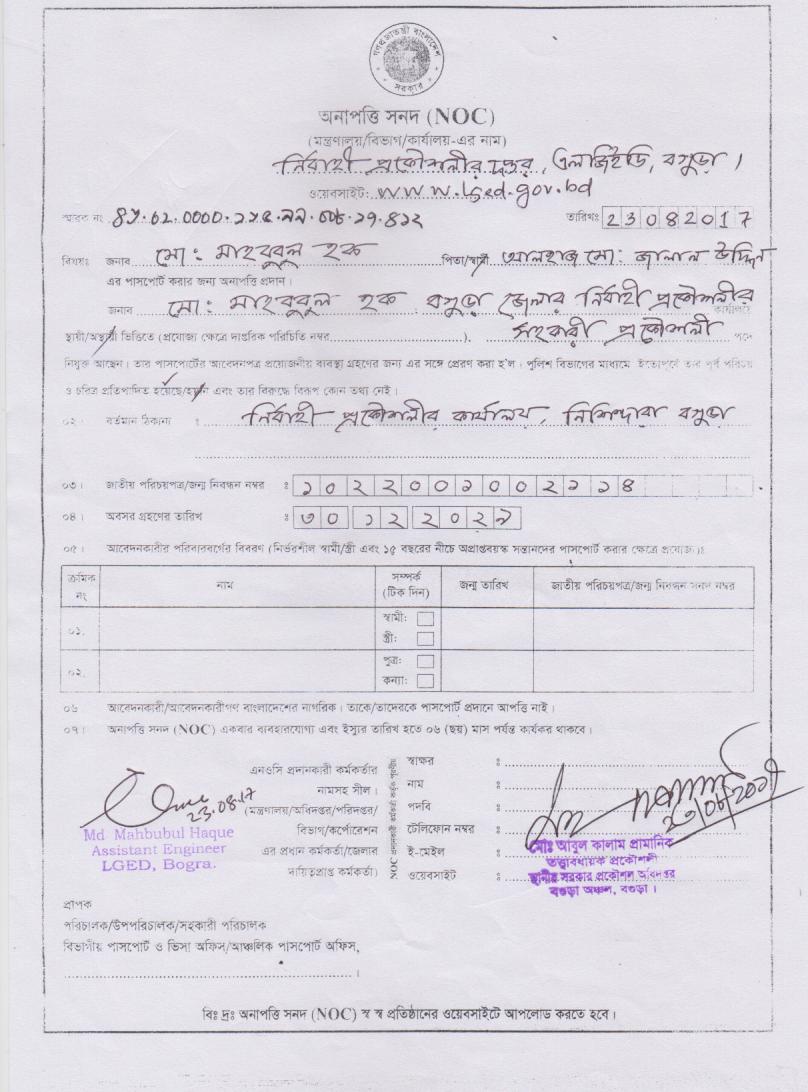 গণপ্রজাতন্ত্রী বাংলাদেশ
সরকার
অনাপত্তি সনদ (NOC)
(মন্ত্রণালয়/বিভাগ/কার্যালয়-এর নাম)
নির্বাহী প্রকৌশলীর দপ্তর, এলজিইডি, বগুড়া।
ওয়েবসাইট: www.lged.gov.bd
স্মারক নং
তারিখঃ 23082017
বিষয়ঃ জনাব মো: মাহবুবুল হক পিতা/স্বামী আলহাজ মো: জালাল উদ্দিন
এর পাসপোর্ট করার জন্য অনাপত্তি প্রদান।
জনাব মো: মাহবুবুল হক বগুড়া জেলার নির্বাহী প্রকৌশলীর কার্যালয়ে
স্থায়ী/অস্থায়ী ভিত্তিতে (প্রযোজ্য ক্ষেত্রে দাপ্তরিক পরিচিতি নম্বর ). সহকারী প্রকৌশলী পদে
নিযুক্ত আছেন। তার পাসপোর্টের আবেদনপত্র প্রয়োজনীয় ব্যবস্থা গ্রহণের জন্য এর সঙ্গে প্রেরণ করা হ'ল। পুলিশ বিভাগের মাধ্যমে ইতোপূর্বে তার পূর্ব পরিচয়
ও চরিত্র প্রতিপাদিত হয়েছে/হয়নি এবং তার বিরুদ্ধে বিরূপ কোন তথ্য নেই।
০২। বর্তমান ঠিকানা : নির্বাহী প্রকৌশলীর কার্যালয়, নিশিন্দারা বগুড়া
০৩। জাতীয় পরিচয়পত্র/জন্ম নিবন্ধন নম্বর ঃ ১০২২০০১০০২১১৪
০৪। অবসর গ্রহণের তারিখ ঃ ৩০ ১২ ২০২৯
০৫। আবেদনকারীর পরিবারবর্গের বিবরণ (নির্ভরশীল স্বামী/স্ত্রী এবং ১৫ বছরের নীচে অপ্রাপ্তবয়স্ক সন্তানদের পাসপোর্ট করার ক্ষেত্রে প্রযোজ্য)ঃ
ক্রমিক নং নাম সম্পর্ক (টিক দিন) জন্ম তারিখ জাতীয় পরিচয়পত্র/জন্ম নিবন্ধন সনদ নম্বর
০১. স্বামী:
স্ত্রী:
০২. পুত্র:
কন্যা:
০৬ আবেদনকারী/আবেদনকারীগণ বাংলাদেশের নাগরিক। তাকে/তাদেরকে পাসপোর্ট প্রদানে আপত্তি নাই।
০৭। অনাপত্তি সনদ (NOC) একবার ব্যবহারযোগ্য এবং ইস্যুর তারিখ হতে ০৬ (ছয়) মাস পর্যন্ত কার্যকর থাকবে।
23.08.17
Md Mahbubul Haque
Assistant Engineer
LGED, Bogra.
এনওসি প্রদানকারী কর্মকর্তার
নামসহ সীল।
(মন্ত্রণালয়/অধিদপ্তর/পরিদপ্তর/
বিভাগ/কর্পোরেশন
এর প্রধান কর্মকর্তা/জেলার
দায়িত্বপ্রাপ্ত কর্মকর্তা)
NOC প্রদানকারী কর্মকর্তা কর্তৃক পূরণীয়
স্বাক্ষর ঃ
নাম ঃ
পদবি ঃ
টেলিফোন নম্বর ঃ
ই-মেইল ঃ
ওয়েবসাইট ঃ
মোঃ আবুল কালাম প্রামানিক
তত্ত্বাবধায়ক প্রকৌশলী
স্থানীয় সরকার প্রকৌশল অধিদপ্তর
বগুড়া অঞ্চল, বগুড়া।
প্রাপক
পরিচালক/উপপরিচালক/সহকারী পরিচালক
বিভাগীয় পাসপোর্ট ও ভিসা অফিস/আঞ্চলিক পাসপোর্ট অফিস,
বিঃ দ্রঃ অনাপত্তি সনদ (NOC) স্ব স্ব প্রতিষ্ঠানের ওয়েবসাইটে আপলোড করতে হবে।